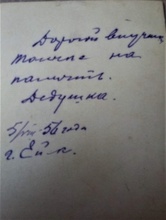 Дорогой внучке
Толочке на
память.
Дедушка.
5/VIII-56 года
г. Ейск.